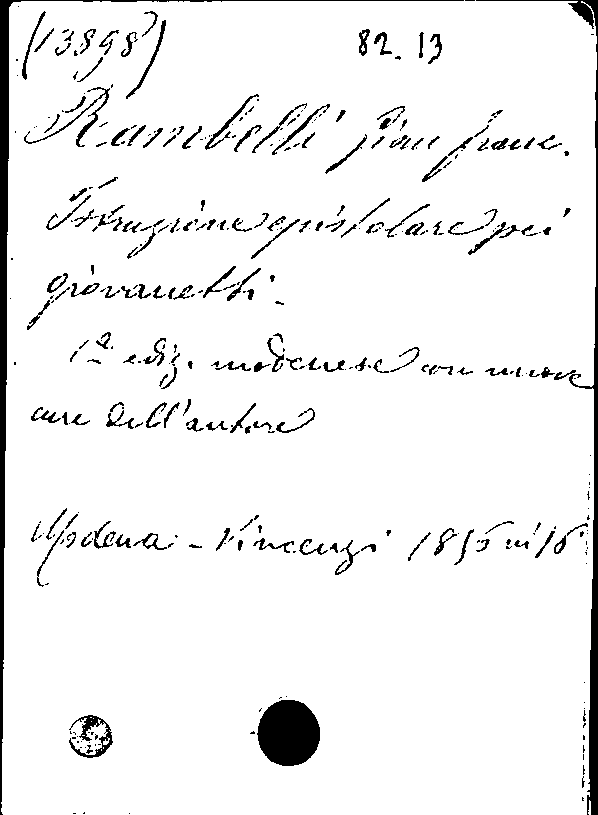 (13898) 82.13
Rambelli Gian Franc.
Istruzione epistolare pei
giovanetti.
1a ediz. modenese con nuove
cure dell'autore
Modena - Vincenzi 1856 in 16